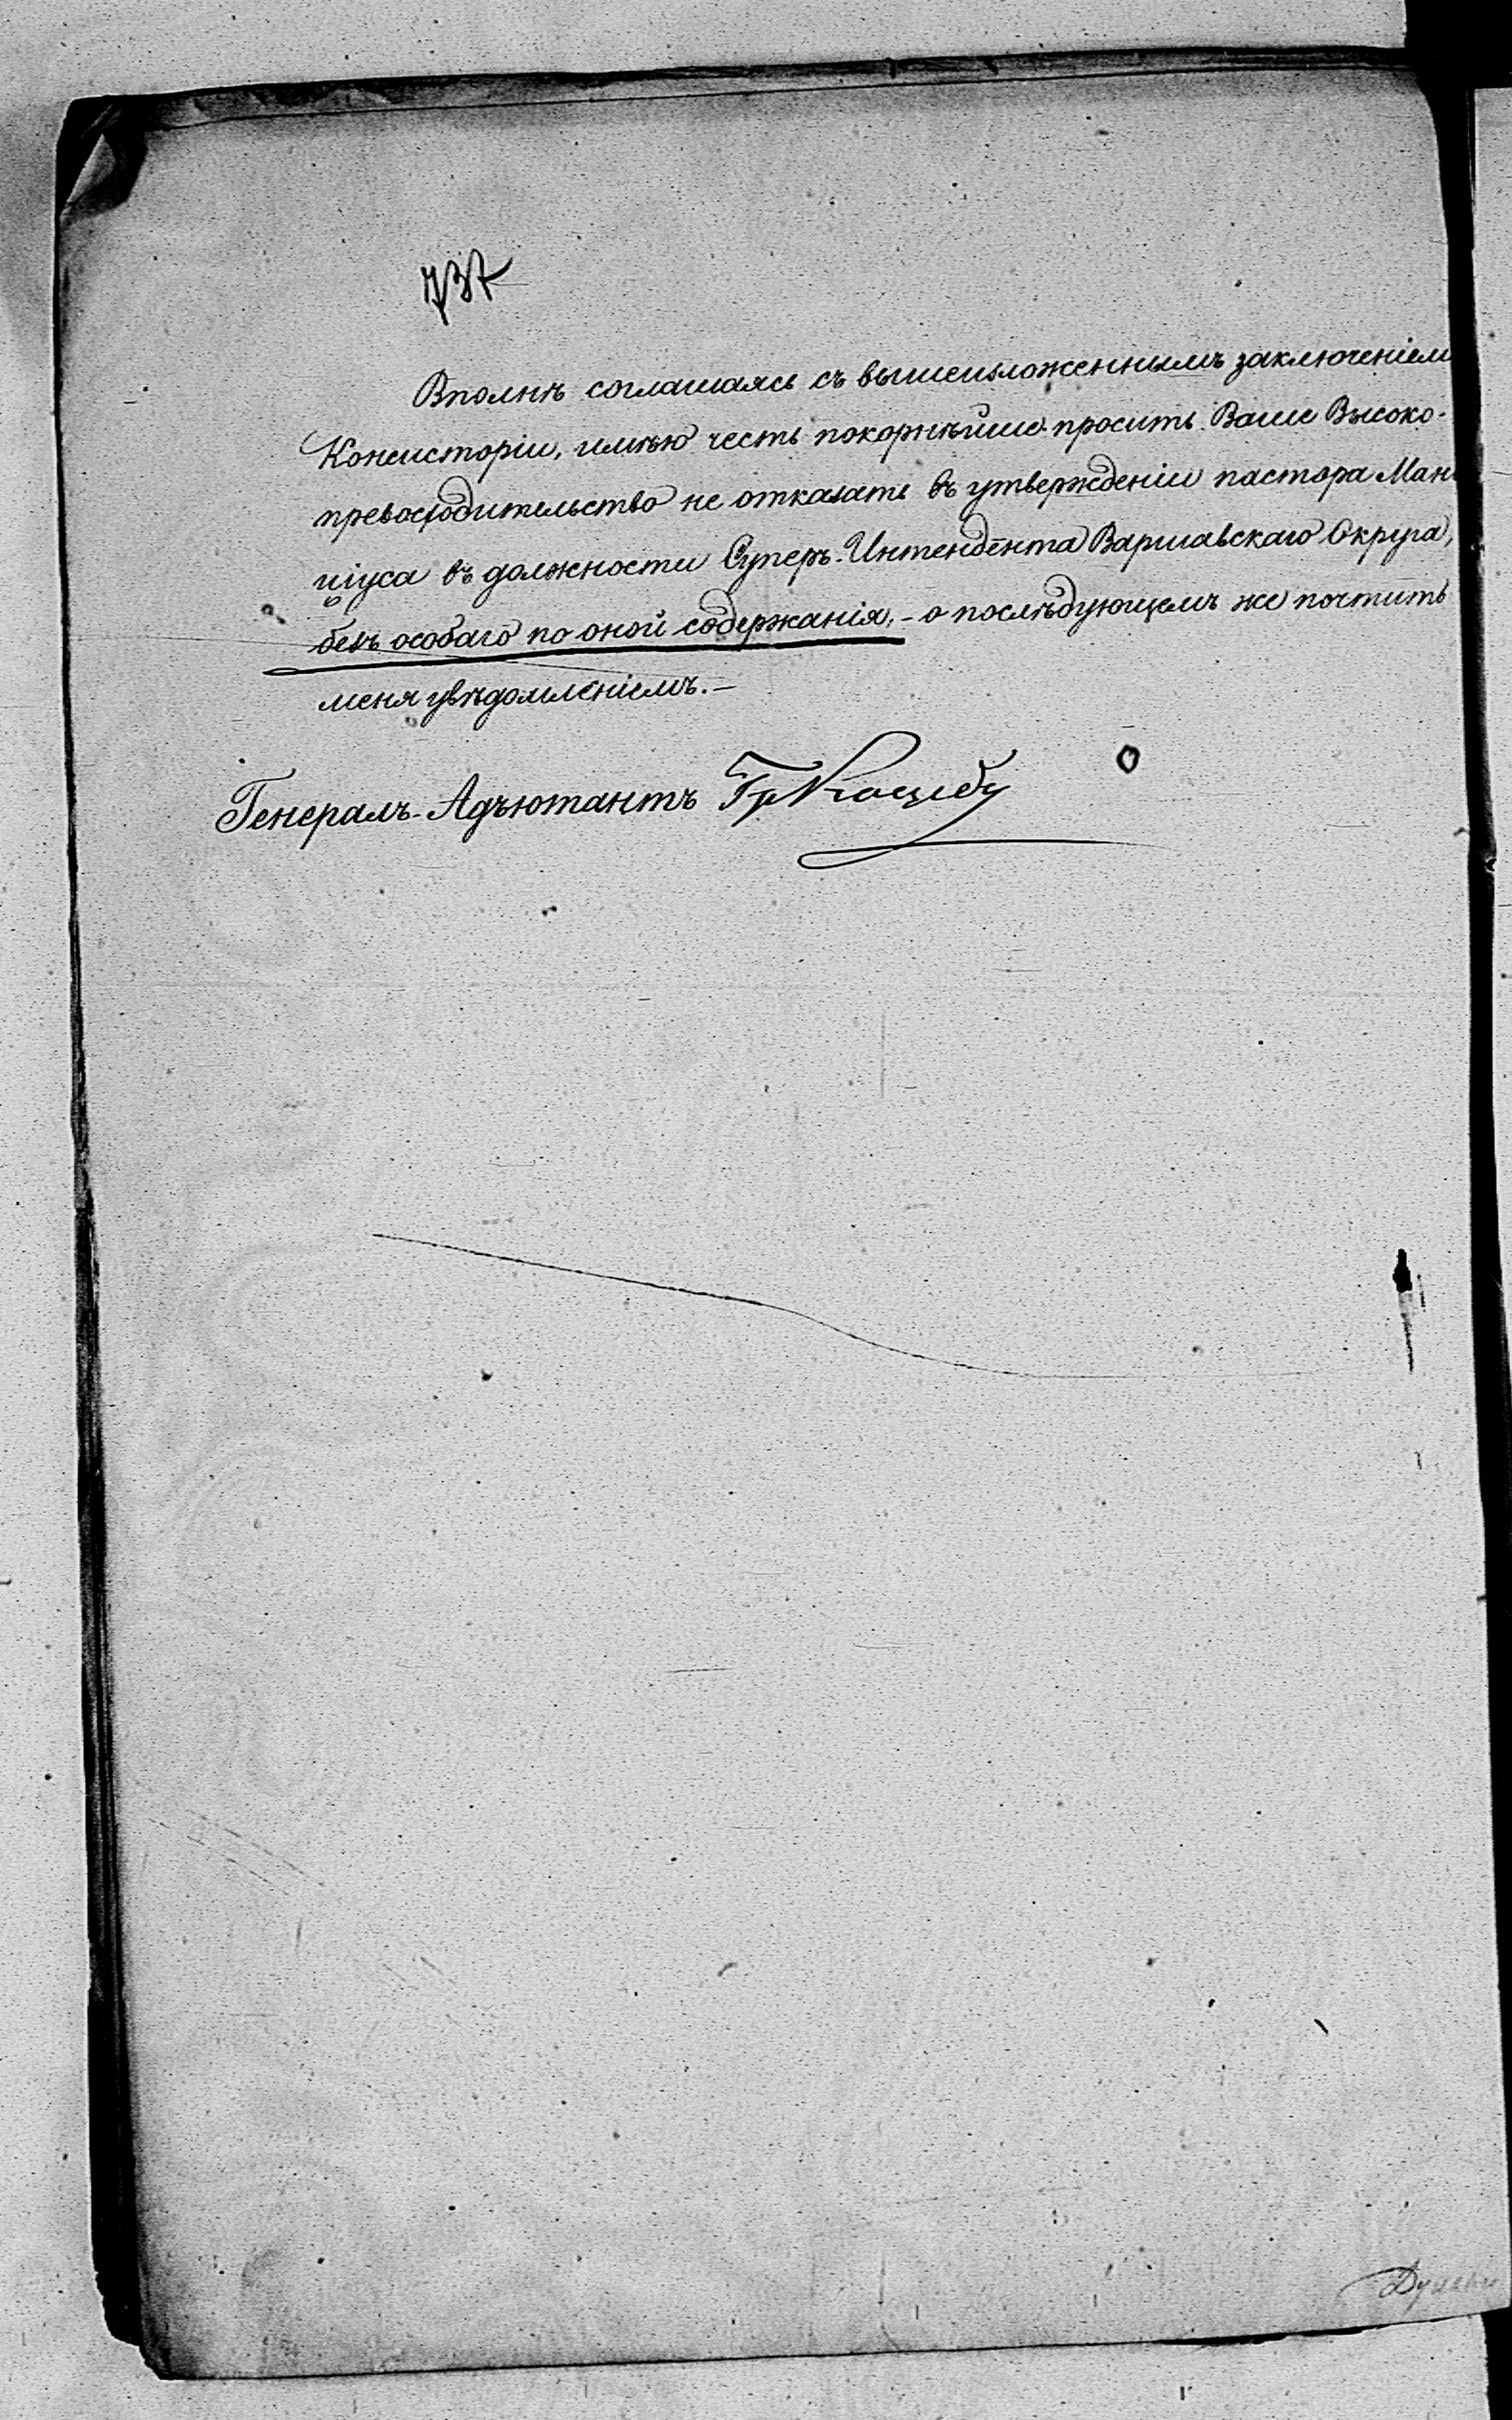 737
Вполнѣ соглашаясь съ вышеизложеннымъ заключеніем
Консисторіи, имѣю честь покорнѣйше просить Ваше Высоко-
превосходительство не отказать въ утвержденіи пастора Ман
иіуса въ должности Суперъ-Интендента Варшавскаго Округа,
безъ особаго по оной содержанія, - о послѣдующемъ же почтить
меня увѣдомленіемъ. -
Генералъ-Адъютантъ Гр Коцебу